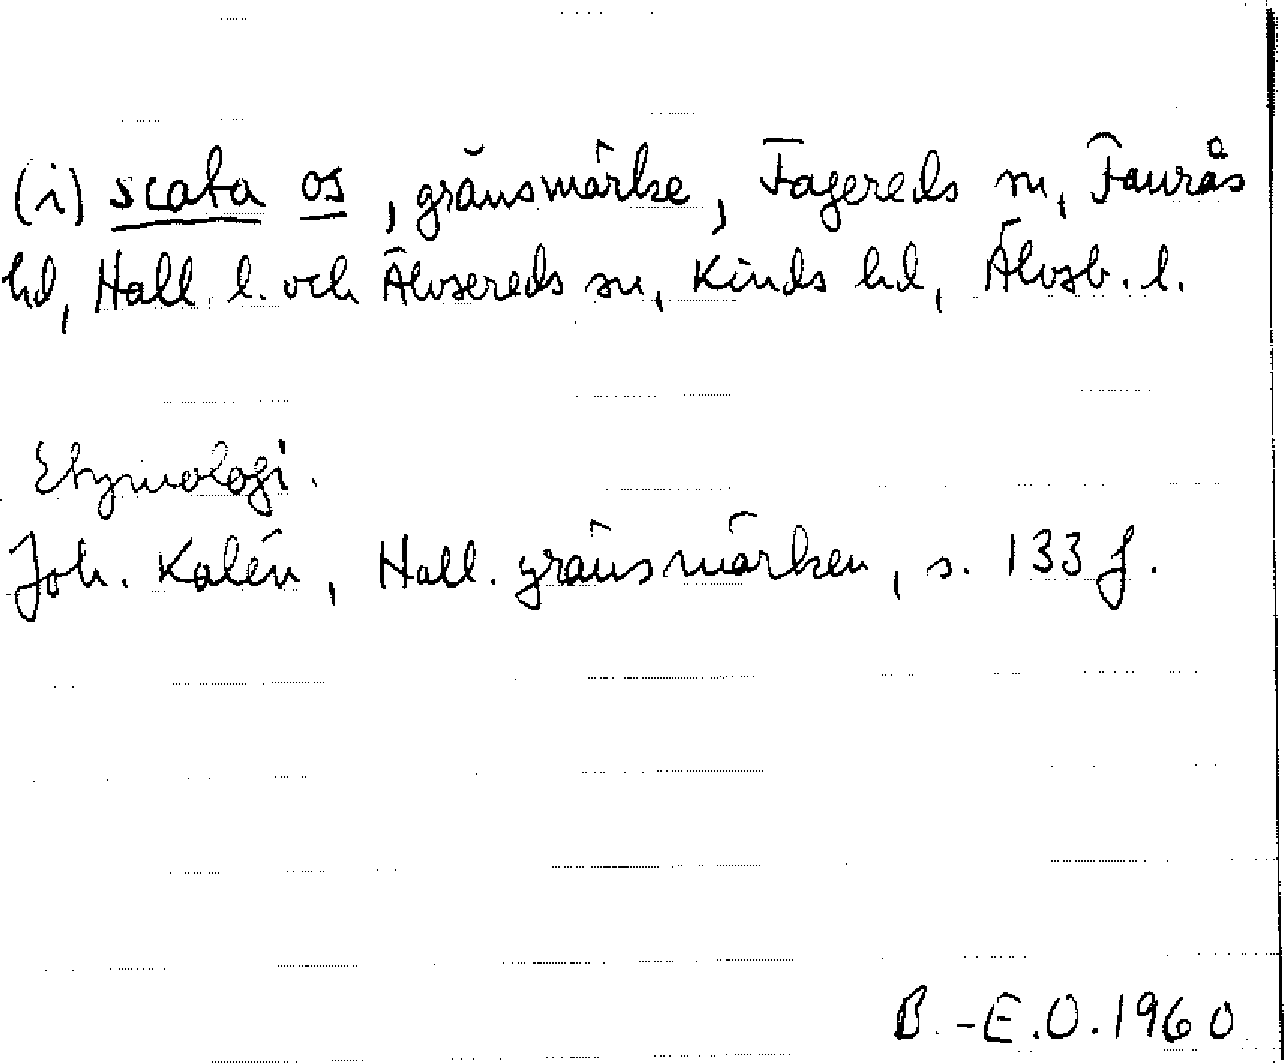 (i) scata os, gränsmärke, Fagereds sn, Faurås
hd, Hall l. och Älvsereds sn, Kinds hd, Älvsb. l.
Etymologi.
Joh. Kalén, Hall. gränsmärken, s. 133 f.
B.-E.O. 1960